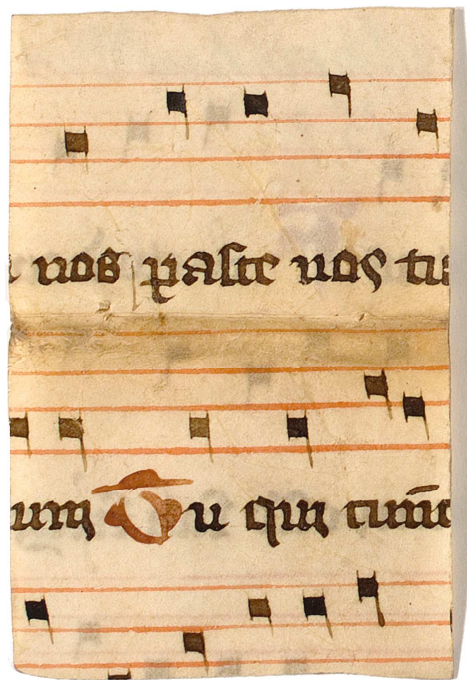 nos pasce nos tu
um Tu qui cunc